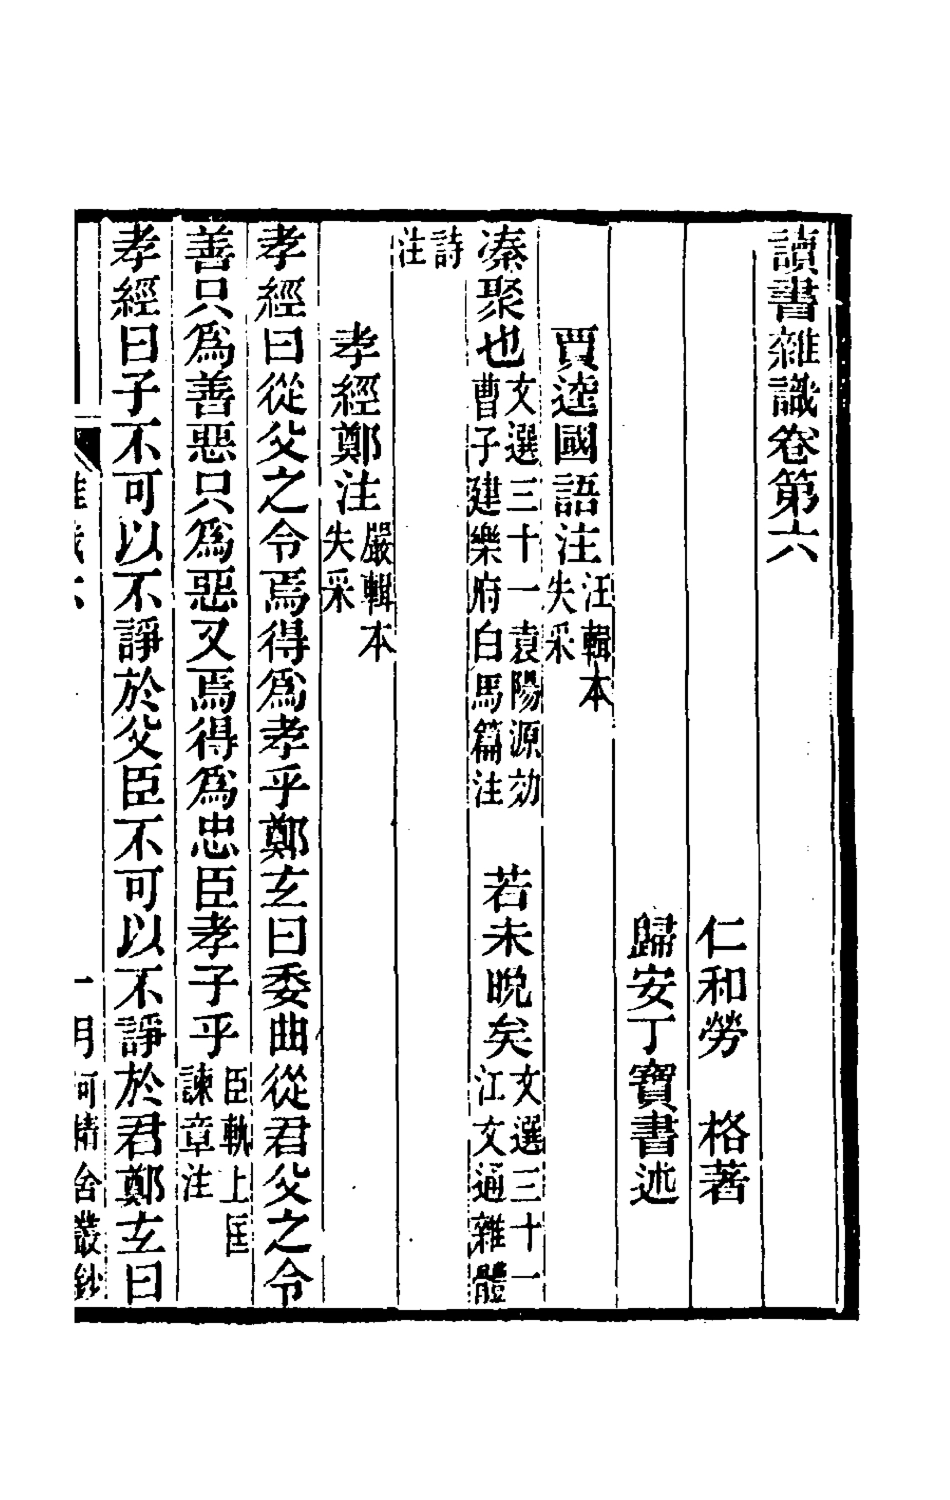 讀書雜識卷第六
仁和勞　格著
歸安丁寶書述
賈逵國語注汪輯本失采
湊聚也文選三十一袁陽源効曹子建樂府白馬篇注　若未晩矣文選三十一江文通雜體
詩注
孝經鄭注嚴輯本失采
孝經曰從父之令焉得爲孝乎鄭玄曰委曲從君父之令
善只爲善惡只爲惡又焉得爲忠臣孝子乎臣軌上匡諫章注
孝經曰子不可以不諍於父臣不可以不諍於君鄭玄曰
雜識六　一　月河精舍叢鈔